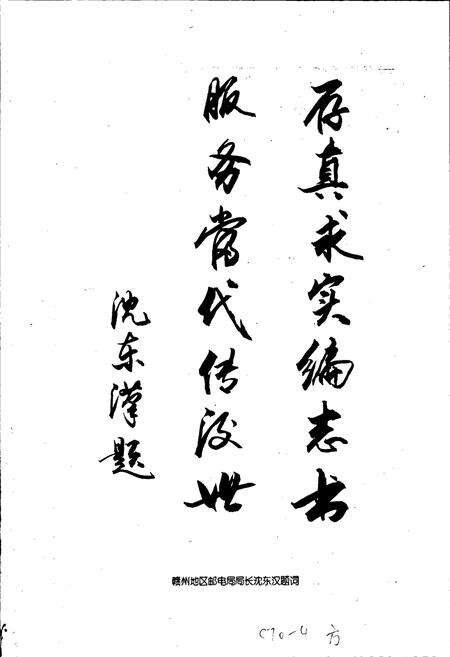 存真求实编志书
服务當代传後世
沈东漢题
赣州地区邮电局局长沈东汉题词
C70-4 方